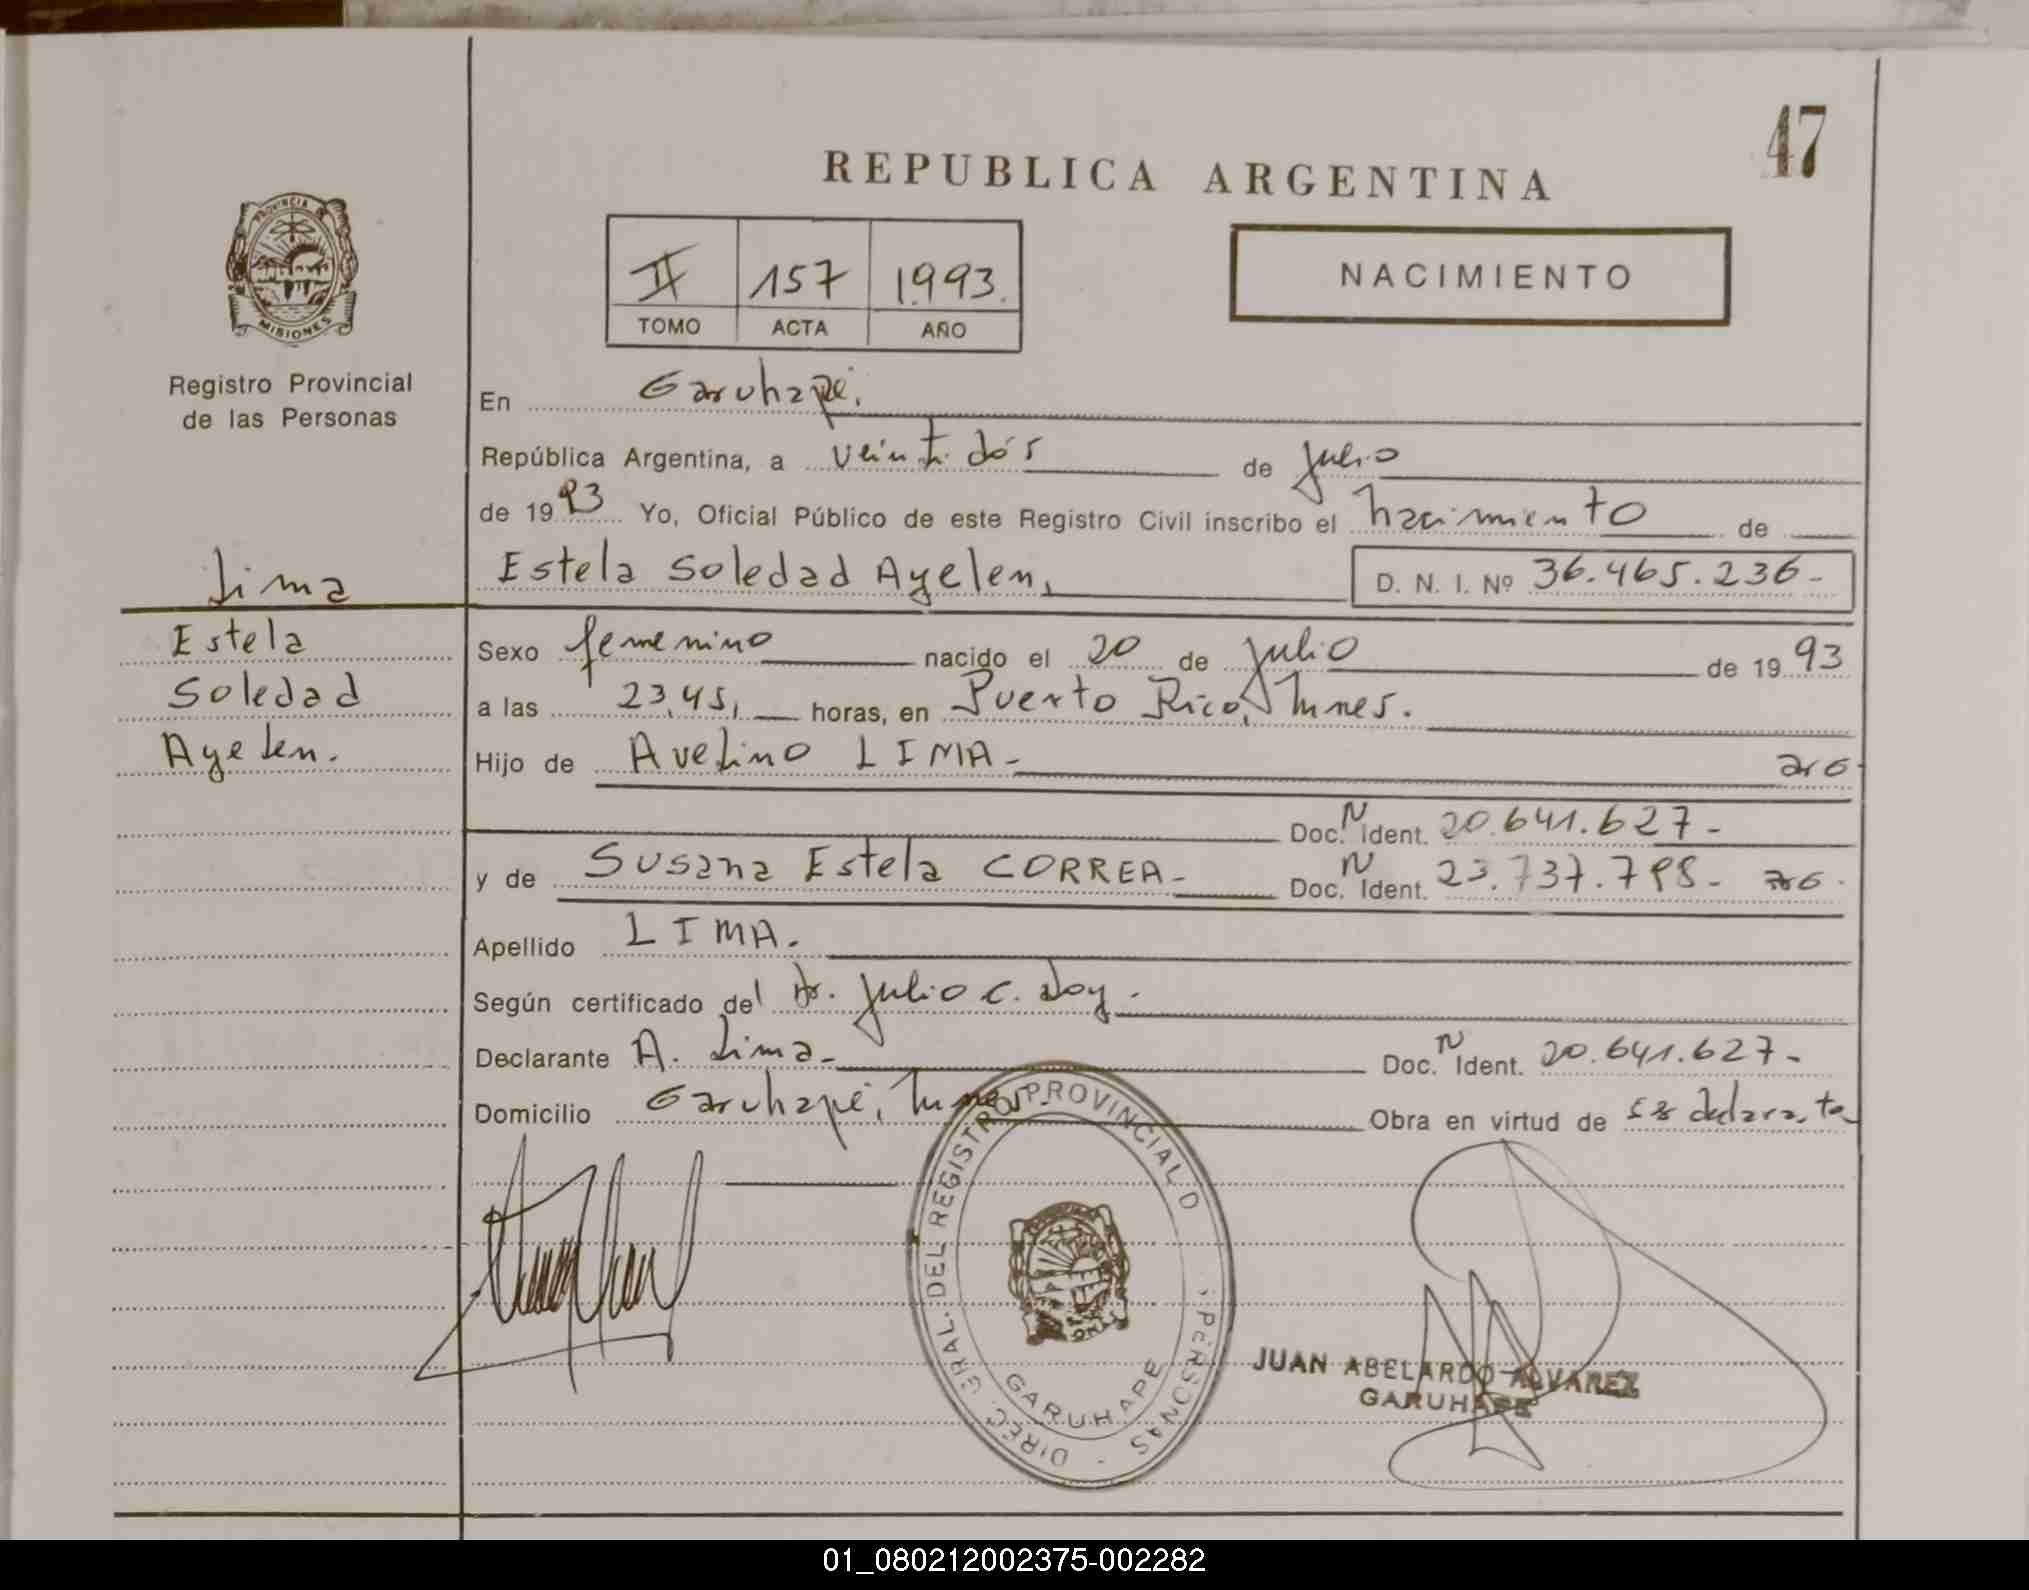 47
REPUBLICA ARGENTINA
PROVINCIA
MISIONES
II 157 1993.
TOMO ACTA AÑO
NACIMIENTO
Registro Provincial
de las Personas
En Garuhapé.
República Argentina, a veinti dós de julio
de 1993 Yo, Oficial Público de este Registro Civil inscribo el nacimiento de
Estela Soledad Ayelen, D. N. I. Nº 36.465.236-
Lima
Estela
Soledad
Ayelen.
Sexo femenino nacido el 20 de julio de 1993
a las 23,45, horas, en Puerto Rico, Mnes.
Hijo de Avelino LIMA- arg
Doc. N Ident. 20.641.627-
y de Susana Estela CORREA- Doc. N Ident. 23.737.798- arg.
Apellido LIMA.
Según certificado del Dr. Julio C. Doy.
Declarante A. Lima- Doc. N Ident. 20.641.627-
Domicilio Garuhapé, Mnes. Obra en virtud de ser declarante
DIREC. GRAL. DEL REGISTRO PROVINCIAL D PERSONAS
GARUHAPE
JUAN ABELARDO ALVAREZ
GARUHAPE
01_080212002375-002282